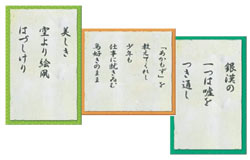 美しき
空より絵凧
はづしけり
「あかもず」を
教えてくれし
少年も
仕事に就きみむ
鳥好きのまま
銀漢の
一つは嘘を
つき通し